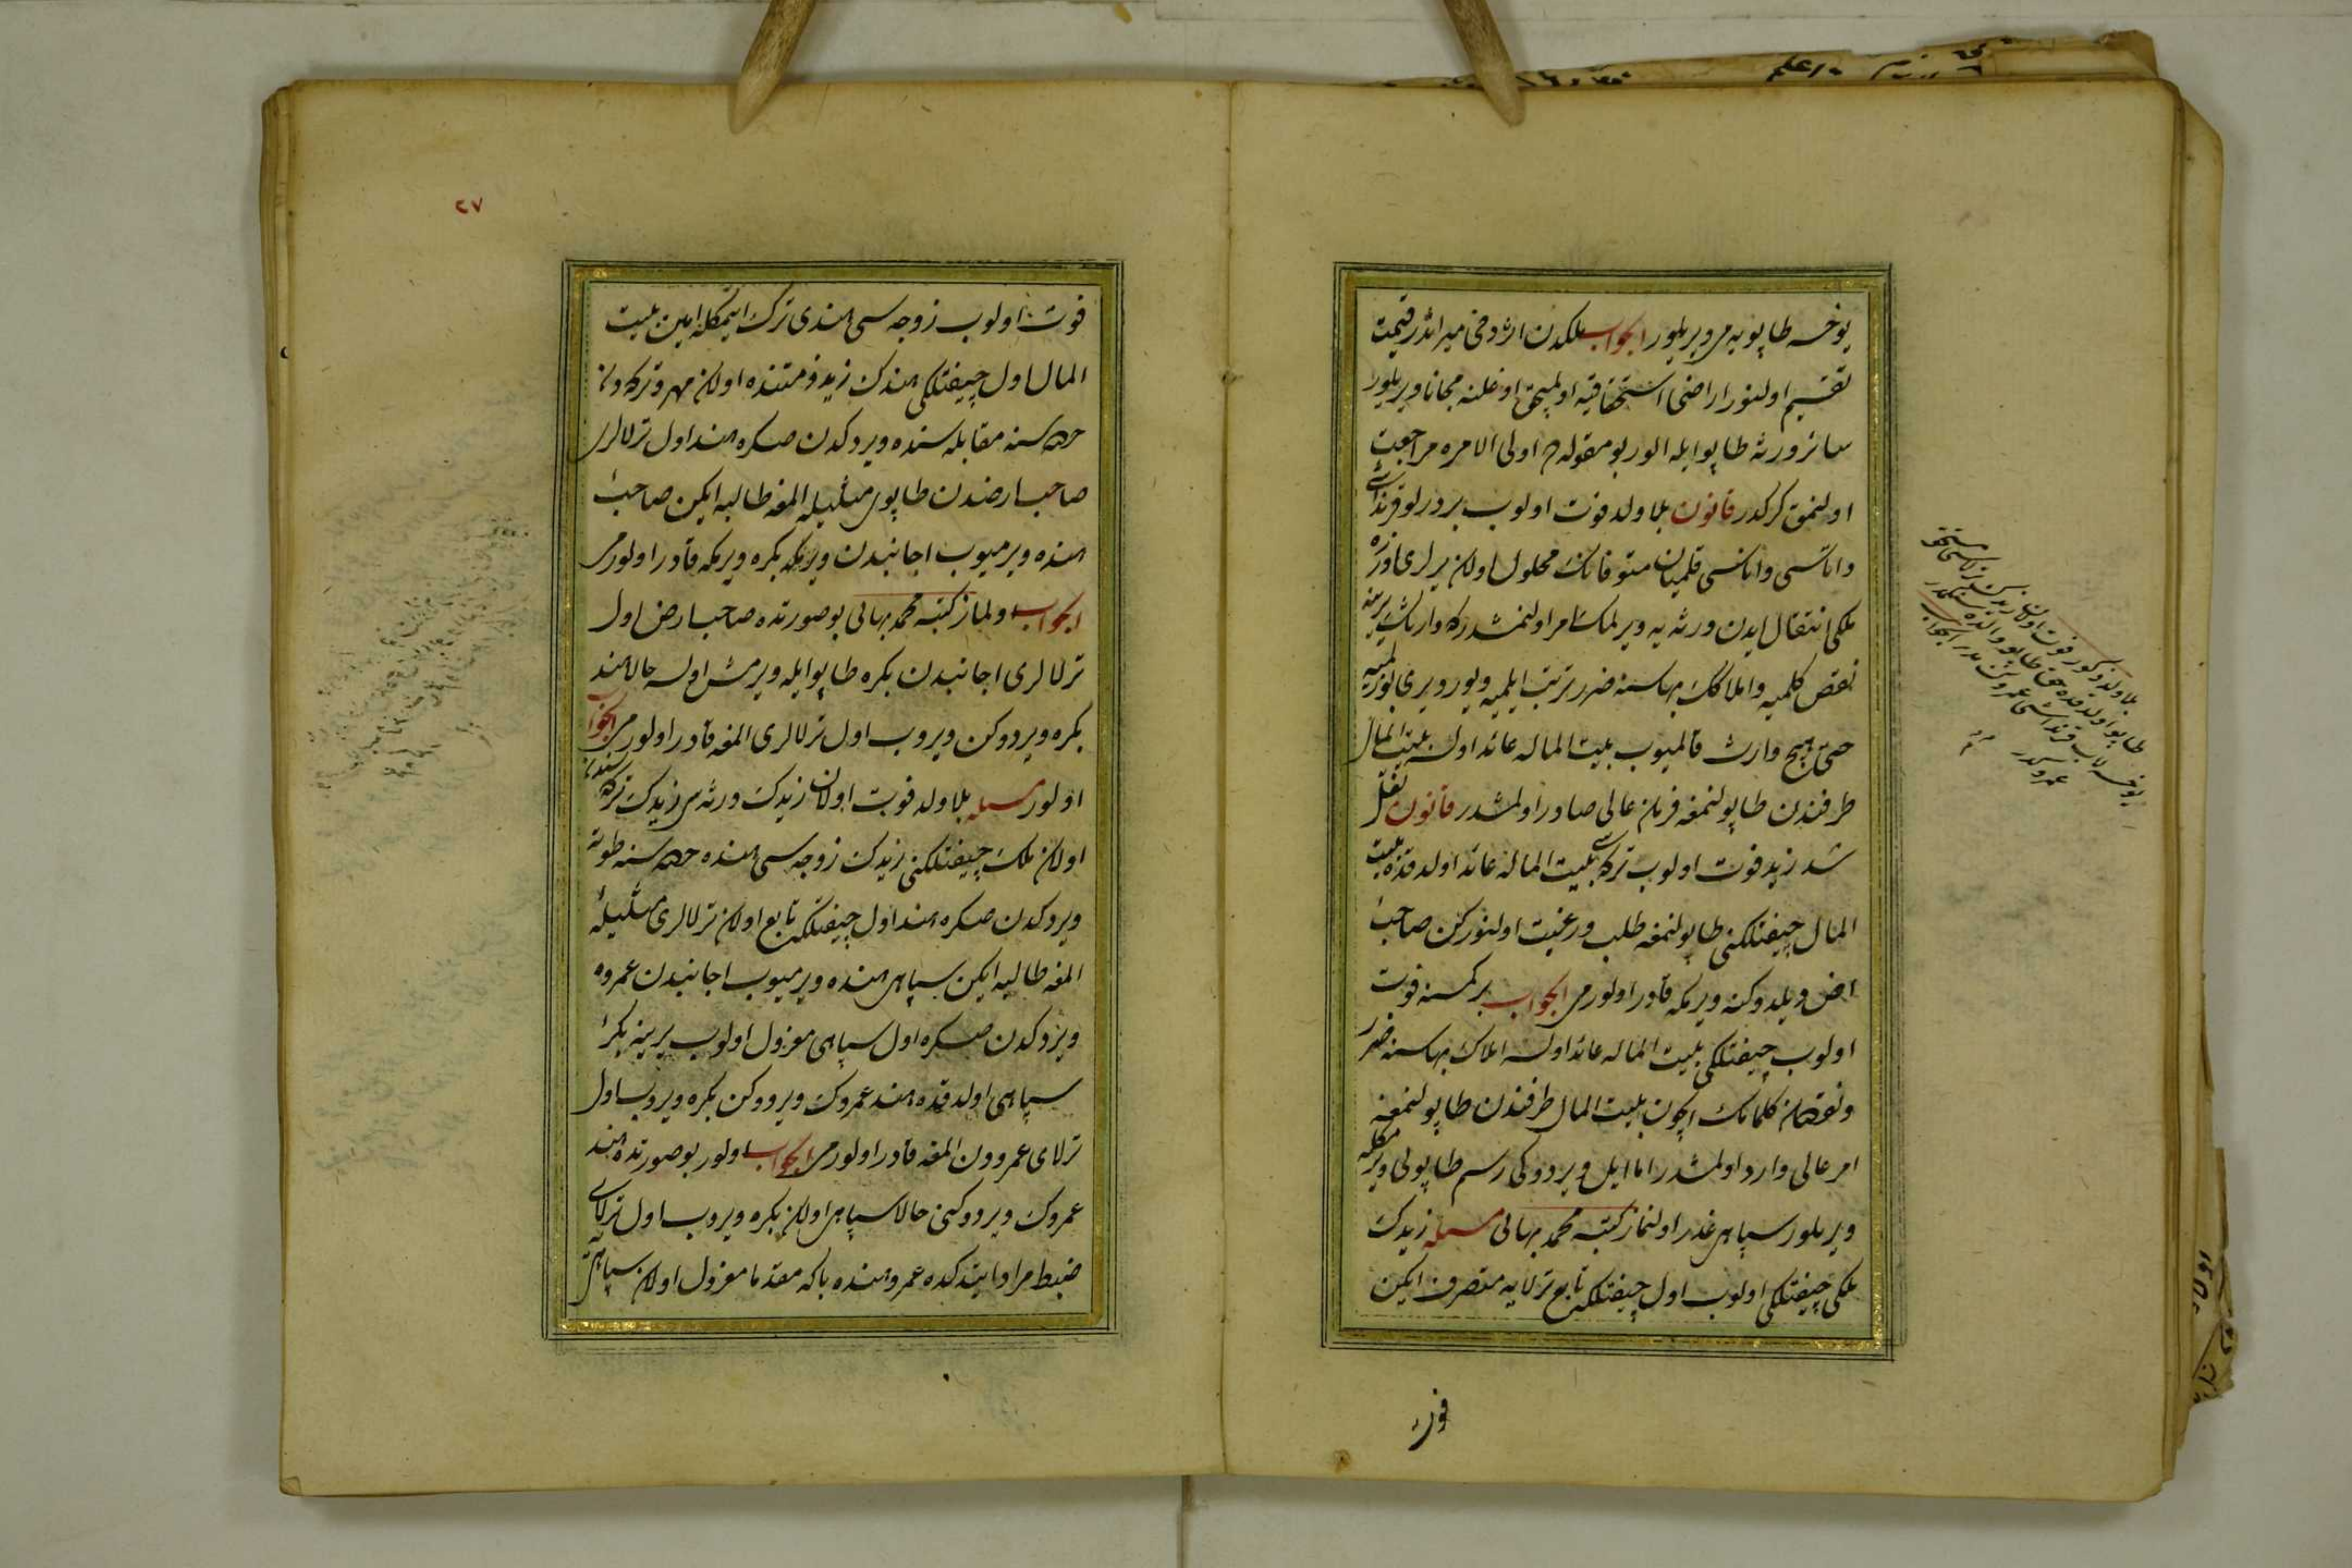 يوخسه طاپويه می ويريلور الجواب ملكدن ارثدوخی ميراثدر قيمت
تقسيم اولنور اراضی استحقاقيه اولمیوب اوغلنه مجانا ويريلور
سائر ورثه طاپو ايله الور بو مقوله ده اولی الامره مراجعت
اولنمق كركدر قانون بلا ولد فوت اولوب بر در لو قرنداشی
واتاسی واناسی قلميان متوفانك محلول اولان يرلری اوزره
ملكی انتقال ايدن ورثه يه ويرلمك امر اولنمشدركه وارثك يرينه
نقص كلميه واملاكك بهاسنه ضرر ترتب ايلميه ويورويری بوزلميه
حتی هيچ وارث قالميوب بيت الماله عائد اولسه بيت المال
طرفندن طاپولنمغه فرمان عالی صادر اولمشدر قانون نقل
شد زيد فوت اولوب تركه سی بيت الماله عائد اولدقده بيت
المال چيفتلكنی طاپولنمغه طلب ورغبت اولنوركن صاحب
ارض ديلدوكنه ويرمكه قادر اولورمی الجواب بر كمسنه فوت
اولوب چيفتلكی بيت الماله عائد اولسه املاك بهاسنه ضرر
ونقصان كلمامك ايچون بيت المال طرفندن طاپولنمغه
امر عالی وارد اولمشدر اما ايل ويردوكی رسم طاپولی ويرمكله
ويريلور سپاهی غدر اولنماز كتبه محمد بهائی مسئله زيدك
ملكی چيفتلكی اولوب اول چيفتلكه تابع ترلايه متصرف ايكن
فوت
بلا ولد ذكور فوت اولان زيدك ترلاسی مستحق
طاپو اولدقده حق طاپو والده سنكمدر
يوخسه لاب قرنداشی عمروكمدر الجواب
عمروكدر
٢٧
فوت اولوب زوجه سی هندی ترك ايتمكله امين بيت
المال اول چيفتلكی هندك زيد ذمتنده اولان مهر وتركه دن
حصه سنه مقابله سنده ويردكدن صكره هند اول ترلالری
صاحب ارضدن طاپوی مثليله المغه طالبه ايكن صاحب
هنده ويرميوب اجانبدن بكره ويرمكه قادر اولورمی
الجواب اولماز كتبه محمد بهائی بو صورتده صاحب ارض اول
ترلالری اجانبدن بكره طاپو ايله ويرمش اولسه حالا هند
بكره ويردوكن ويروب اول ترلالری المغه قادر اولورمی الجواب
اولور مسئله بلا ولد فوت اولان زيدك ورثه سی زيدك تركه سندن
اولان ملك چيفتلكنی زيدك زوجه سی هنده حصه سنه طوته
ويردكدن صكره هند اول چيفتلكه تابع اولان ترلالری مثليله
المغه طالبه ايكن سپاهی هنده ويرميوب اجانبدن عمروه
ويردكدن صكره اول سپاهی معزول اولوب يرينه بكر
سپاهی اولدقده هند عمروك ويردوكن بكره ويروب اول
ترلای عمرودن المغه قادر اولورمی الجواب اولور بو صورتده هند
عمروك ويردوكنی حالا سپاهی اولان بكره ويروب اول ترلای
ضبط مراد ايتدكده عمرو هنده باكه مقدما معزول اولان سپاهی